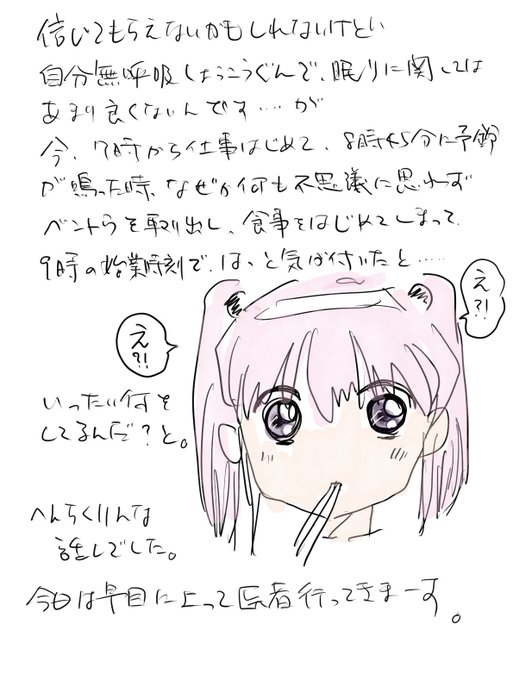 信じてもらえないかもしれないけどぃ
自分無呼吸しょうこうぐんで、眠りに関しては
あまり良くないんです……が
今、7時から仕事はじめて、8時45分に予鈴
が鳴った時、なぜか何も不思議に思わず
ベントうを取り出し、食事をはじめてしまって、
9時の始業時刻で、はっと気が付いたと……
え?!
え?!
いったい何を
してるんだ?と。
へんちくりんな
話しでした。
今日は早目に上って医者行ってきまーす。